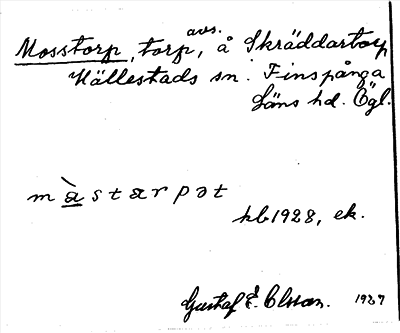 avs.
Mosstorp, torp, å Skräddartorp
Hällestads sn. Finspånga
Läns hd. Ögl.
m à s t a r p ə t
kb 1928, ek.
Gustaf E. Olsson. 1927